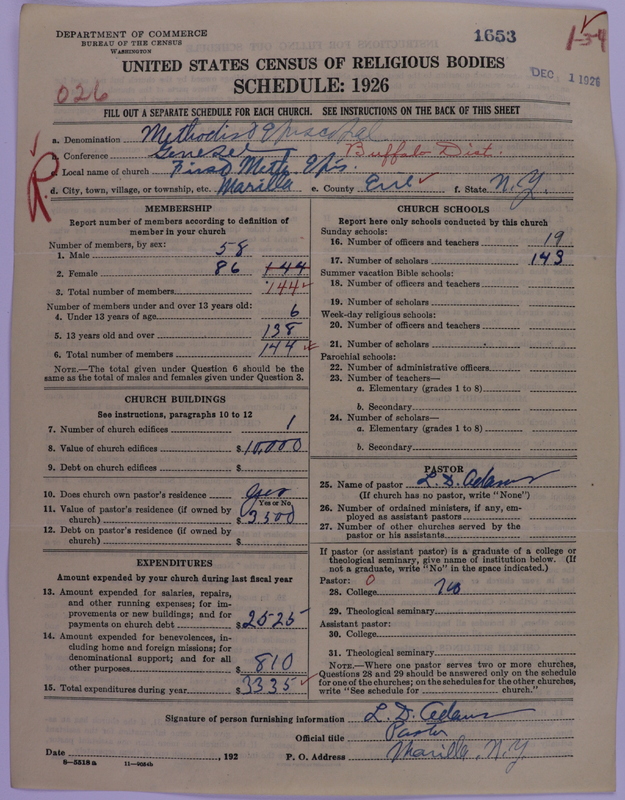 DEPARTMENT OF COMMERCE
BUREAU OF THE CENSUS
WASHINGTON
1653
1-54
DEC 1 1926
UNITED STATES CENSUS OF RELIGIOUS BODIES
SCHEDULE: 1926
026
FILL OUT A SEPARATE SCHEDULE FOR EACH CHURCH. SEE INSTRUCTIONS ON THE BACK OF THIS SHEET
a. Denomination Methodist Episcopal
Conference Genesee Buffalo Dist.
Local name of church First Meth. Epis.
d. City, town, village, or township, etc. Marilla e. County Erie f. State N.Y.
R
MEMBERSHIP
Report number of members according to definition of
member in your church
Number of members, by sex:
1. Male 58
2. Female 86 144
3. Total number of members 144
Number of members under and over 13 years old:
4. Under 13 years of age 6
5. 13 years old and over 138
6. Total number of members 144
NOTE.—The total given under Question 6 should be the
same as the total of males and females given under Question 3.
CHURCH BUILDINGS
See instructions, paragraphs 10 to 12
7. Number of church edifices 1
8. Value of church edifices $10,000
9. Debt on church edifices $
10. Does church own pastor's residence yes
Yes or No
11. Value of pastor's residence (if owned by
church) $3500
12. Debt on pastor's residence (if owned by
church) $
EXPENDITURES
Amount expended by your church during last fiscal year
13. Amount expended for salaries, repairs,
and other running expenses; for im-
provements or new buildings; and for
payments on church debt $2525
14. Amount expended for benevolences, in-
cluding home and foreign missions; for
denominational support; and for all
other purposes $810
15. Total expenditures during year $3335
CHURCH SCHOOLS
Report here only schools conducted by this church
Sunday schools:
16. Number of officers and teachers 19
17. Number of scholars 143
Summer vacation Bible schools:
18. Number of officers and teachers
19. Number of scholars
Week-day religious schools:
20. Number of officers and teachers
21. Number of scholars
Parochial schools:
22. Number of administrative officers
23. Number of teachers—
a. Elementary (grades 1 to 8)
b. Secondary
24. Number of scholars—
a. Elementary (grades 1 to 8)
b. Secondary
PASTOR
25. Name of pastor L. D. Adams
(If church has no pastor, write "None")
26. Number of ordained ministers, if any, em-
ployed as assistant pastors
27. Number of other churches served by the
pastor or his assistants
If pastor (or assistant pastor) is a graduate of a college or
theological seminary, give name of institution below. (If
not a graduate, write "No" in the space indicated.)
Pastor: 0
28. College no
29. Theological seminary
Assistant pastor:
30. College
31. Theological seminary
NOTE.—Where one pastor serves two or more churches,
Questions 28 and 29 should be answered only on the schedule
for one of the churches; on the schedules for the other churches,
write "See schedule for church."
Signature of person furnishing information L. D. Adams
Official title Pastor
Date , 192 P. O. Address Marilla, N.Y.
8—5518a 11—9054b